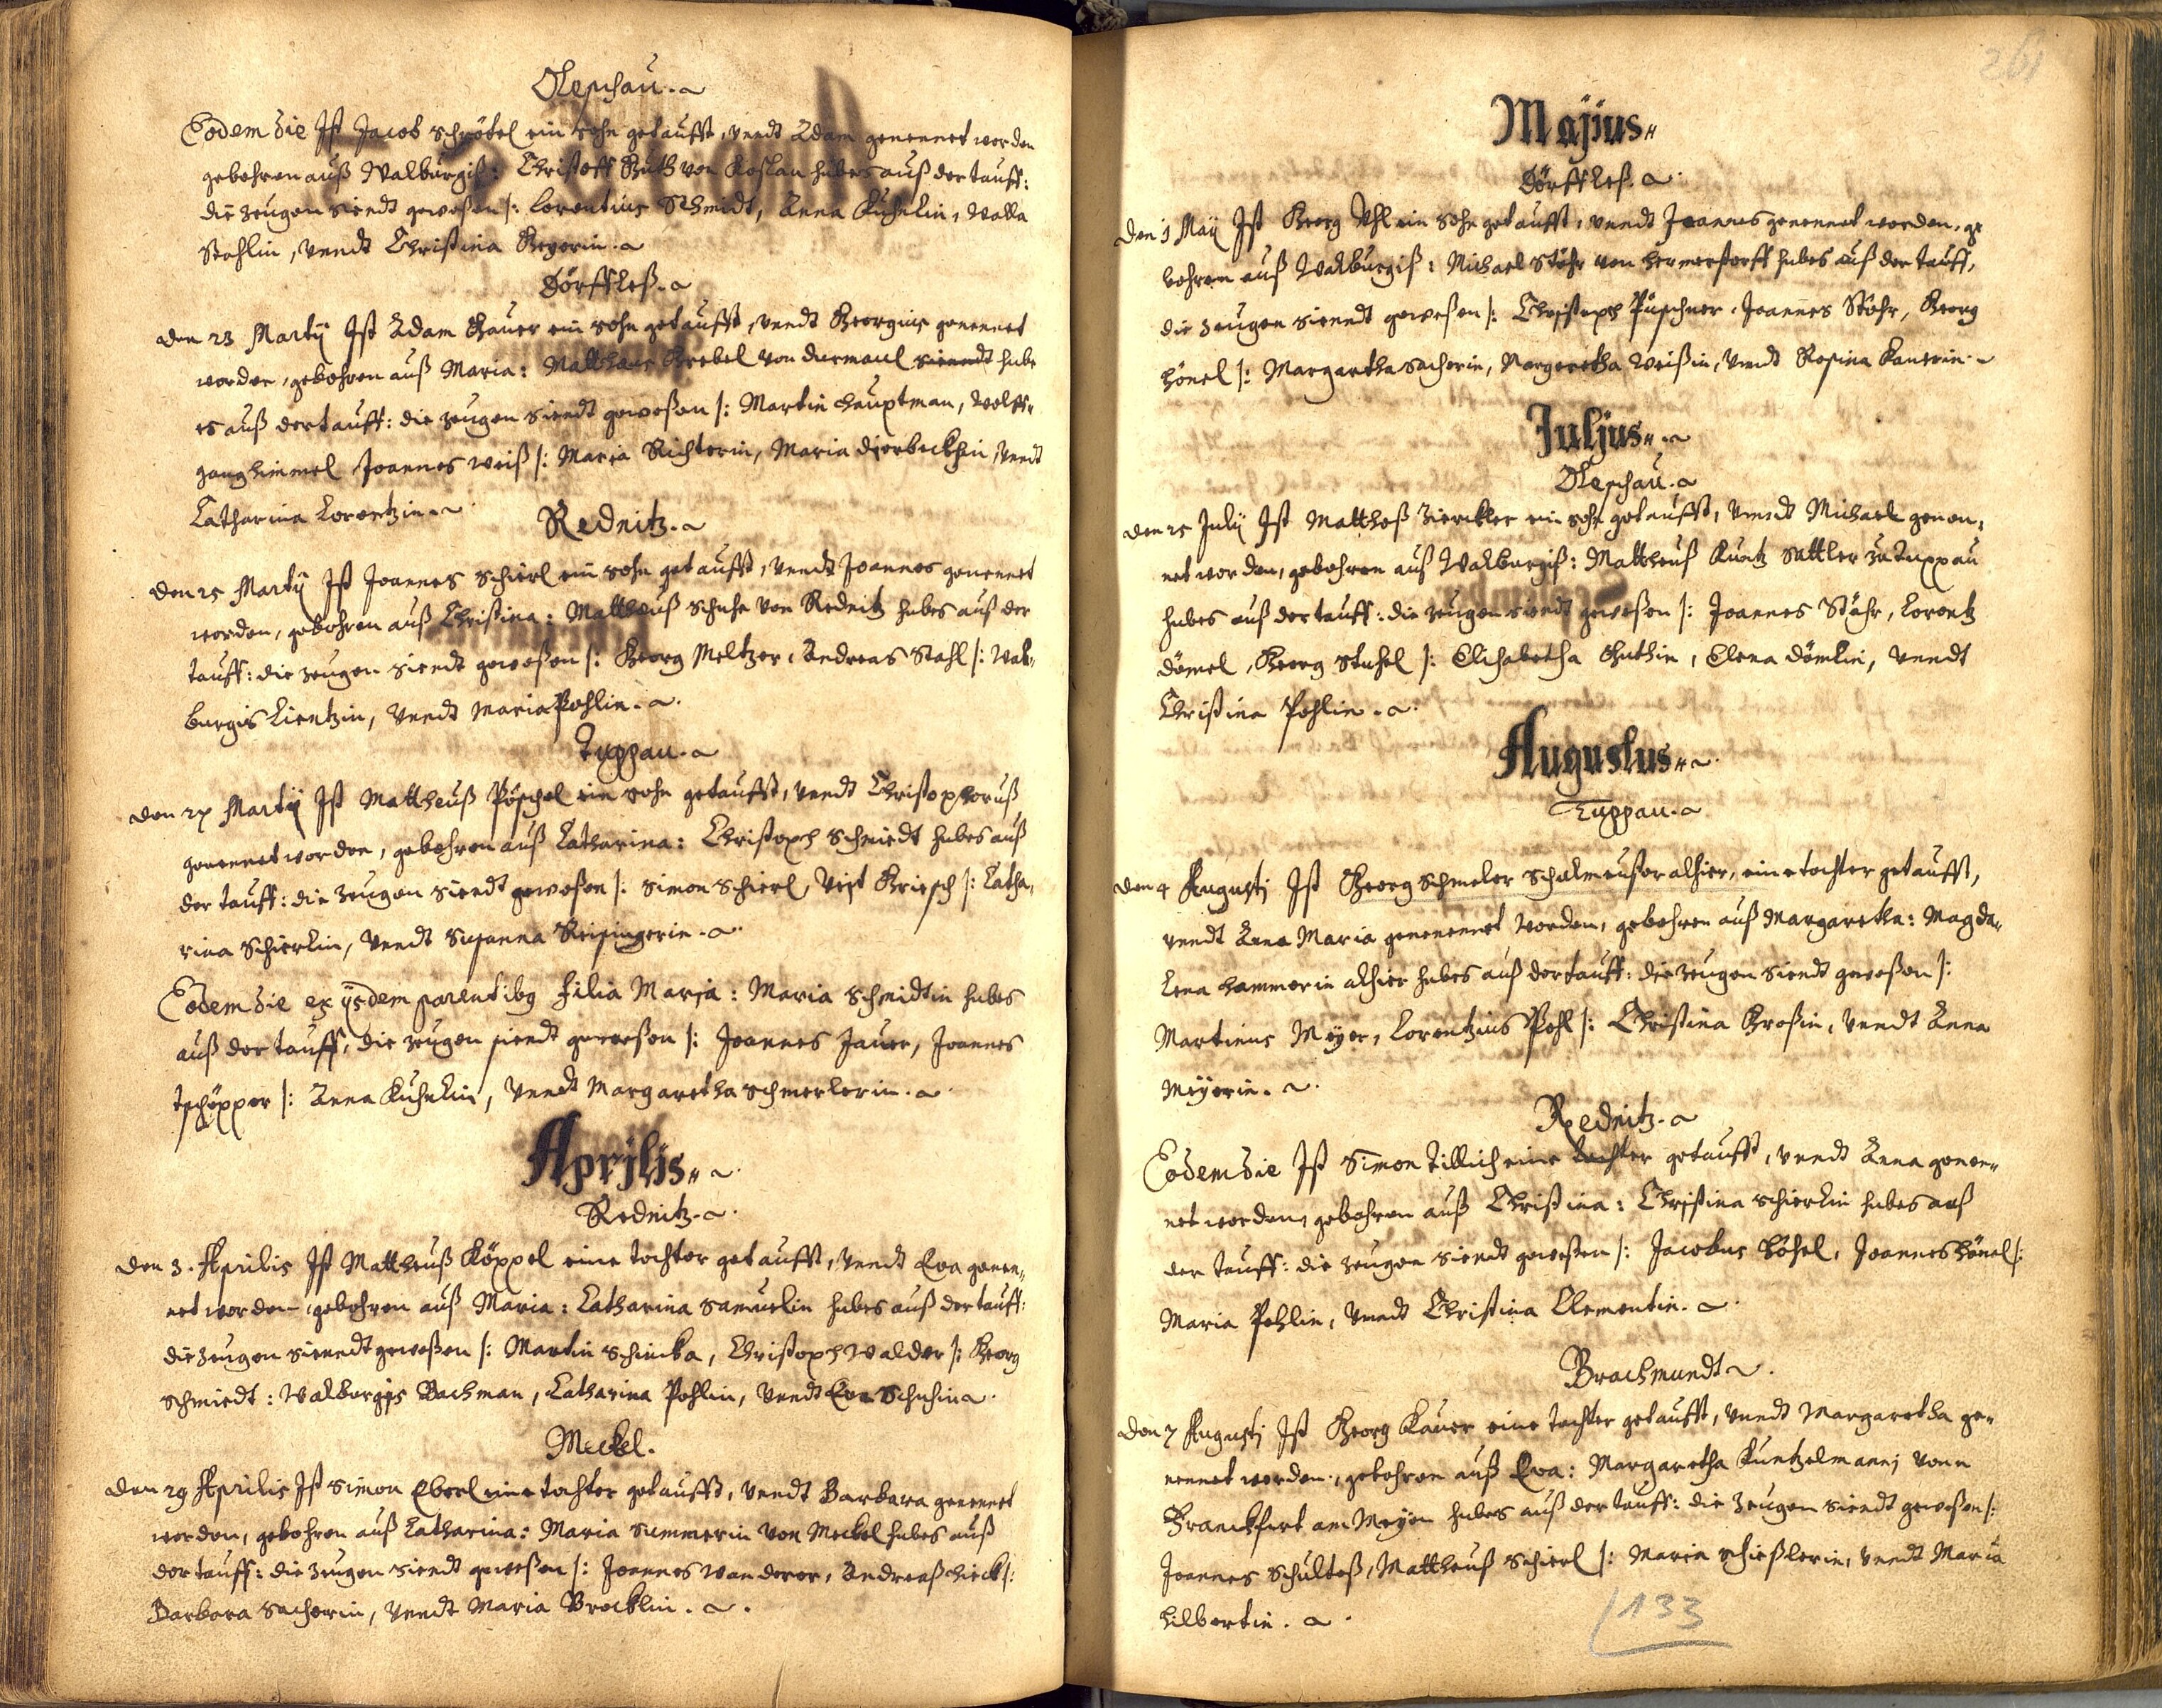 Olepschau.
Eodem die Ist Jacob schrötel ein sohn getaufft, vnndt Adam genennet worden
gebohren auß Walburgiß: Christoff Guth von Koslau hubes auß der tauff:
die zeugen siendt geweßen /: Lorentius Schmidt, Anna Kuhnlin, Walla
Stahlin, vnndt Christina Beyerin.
Dörffleß.
den 23 Martij Ist Adam Bauer ein sohn getaufft, vnndt Georgius genennet
worden, gebohren auß Maria: Matthaeus Grebel von durmaul siendt hube
es auß der tauff: die zeugen siendt geweßen /: Martin hauptman, Wolff„
gang himmel Joannes weiß /: Maria Richterin, Maria vnndt
Catharina Lorentzin.
Rednitz.
den 25 Martij Ist Joannes schierl ein sohn getaufft, vnndt Joannes genennet
worden, gebohren auß Christina: Mattheuß schuhe von Rednitz hubes auß der
tauff: die zeugen siendt geweßen /: Georg Meltzer, Andreas Stahl /: Wal„
burgis Lientzin, vnndt Maria Pohlin.
Tuppau.
den 27 Martij Ist Mattheuß Pöschel ein sohn getaufft, vnndt Christophoruß
genennet worden, gebohren auß Catharina: Christoph schmiedt hubes auß
der tauff: die zeugen siendt geweßen /: Simon schierl, Veit Griesch /: Catha„
rina schierlin, vnndt Susanna Reisingerin.
Eodem die ex ijsdem parentibq filia Maria: Maria schmidtin hubes
auß der tauff, die zeugen siendt geweßen /: Joannes Jauer, Joannes
tschöpper /: Anna Kuhnlin, vnndt Margaretha schmerlerin.
Aprilis„
Rednitz.
den 3. Aprilis Ist Mattheuß Köppel eine tochter getaufft, vnndt Eva genen„
net worden gebohren auß Maria: Catharina samuelin hubes auß der tauff:
die zeugen siendt geweßen /: Martin schinka, Christoph Walder /: Georg
schmiedt: Walburgis Bachman, Catharina Pohlin, vnndt Eva schuhin
Meckel.
den 29 Aprilis Ist simon Eberl eine tochter getaufft, vnndt Barbara genennet
worden, gebohren auß Catharina: Maria summerin von Meckel hubes auß
der tauff: die zeugen siendt geweßen /: Joannes wanderer, Andreaß hieck /:
Barbara sacherin, vnndt Maria Brocklin.
261
Majius„
Dörffleß.
den 1 Maij Ist Georg Uhl ein sohn getaufft, vnndt Joannes genennet worden, ge
bohren auß Walburgiß: Michael Stöhr von hermerstorff hubes auß der tauff,
die zeugen siendt geweßen /: Christoph Püschner, Joannes Stöhr, Georg
hönel /: Margaretha sacherin, Margaretha Weißin, vnndt Rosina Kanerin
Juljus„
Olepschau.
den 25 Julij Ist Matthes Zierckler ein sohn getaufft, vnndt Michael genen„
net worden, gebohren auß Walburgiß: Mattheuß Kuntz sattler zu Tuppau
hubes auß der tauff: die zeugen siendt geweßen /: Joannes Stähr, Lorentz
dömel, Georg stuhel /: Elisabetha Guthin, Elena dömlin, vnndt
Christina Pohlin.
Augustus„
Tuppau.
den 4 Augusti Ist Georg schmeler schalmeußer alhier, eine tochter getaufft,
vnndt Anna Maria genennet worden, gebohren auß Margaretha: Magda„
lena hammerin alhier hubes auß der tauff: die zeugen siendt geweßen /:
Martinus Meyer, Lorentzius Pohl /: Christina Großin, vnndt Anna
Meyerin.
Rednitz.
Eodem die Ist Simon Tillich eine tochter getaufft, vnndt Anna genen„
net worden, gebohren auß Christina: Christina schierlin hubes auß
der tauff: die zeugen siendt geweßen /: Jacobus höhel, Joannes hönel /:
Maria Pohlin, vnndt Christina Clementin.
Brachmundt
den 7 Augusti Ist Georg Kauer eine tochter getaufft, vnndt Margaretha ge„
nennet worden, gebohren auß Eva: Margaretha Kuntzelmannj vonn
Franckfurt am Meyen hubes auß der tauff: die zeugen siendt geweßen /:
Joannes Schulteß, Mattheuß schierl /: Maria schießlerin, vnndt Maria
hilbertin.
133